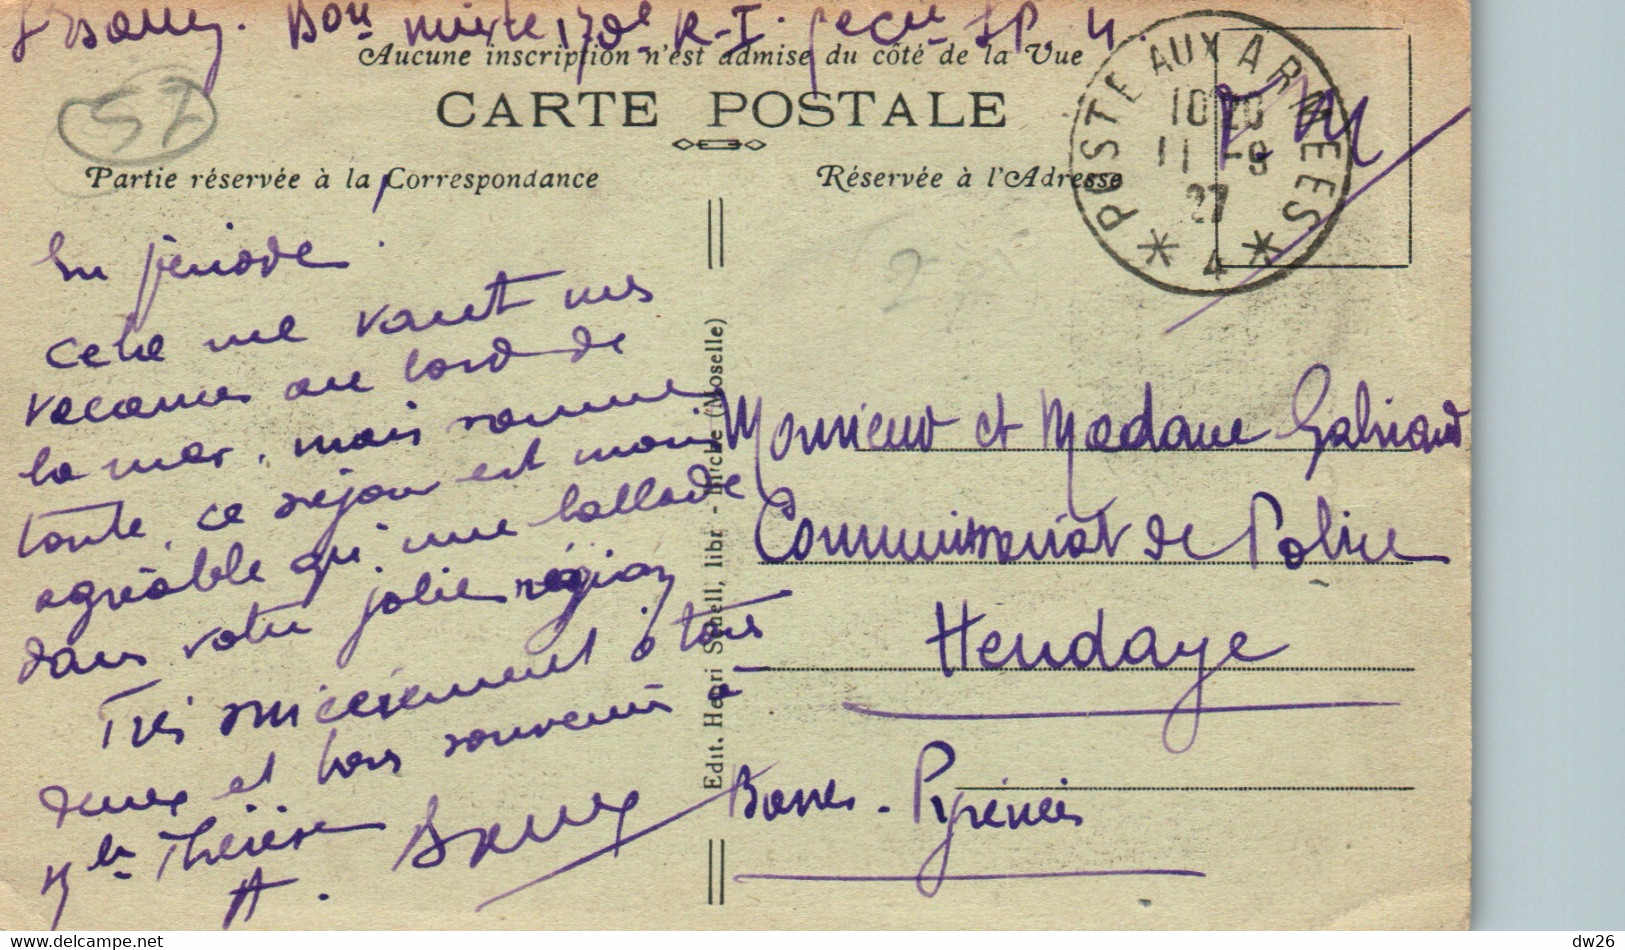 Bon mixte 170e R-I. SP. 4.
Aucune inscription n'est admise du côté de la Vue
57
CARTE POSTALE
F. M
POSTE AUX ARMEES
10 20
11 -9
27
* 4 *
Partie réservée à la Correspondance
Réservée à l'Adresse
En période
Cela me vaut mes
vacances au bord de
la mer, mais somme
toute, ce séjour est moins
agréable qu'une ballade
dans votre jolie région
Très sincèrement à tous
deux et bons souvenirs à
Mlle Thérèse
A.
Edit. Henri Schell, libr - Bitche (Moselle)
Monsieur et Madame
Commissariat de Police
Hendaye
Basses-Pyrénées
dw26